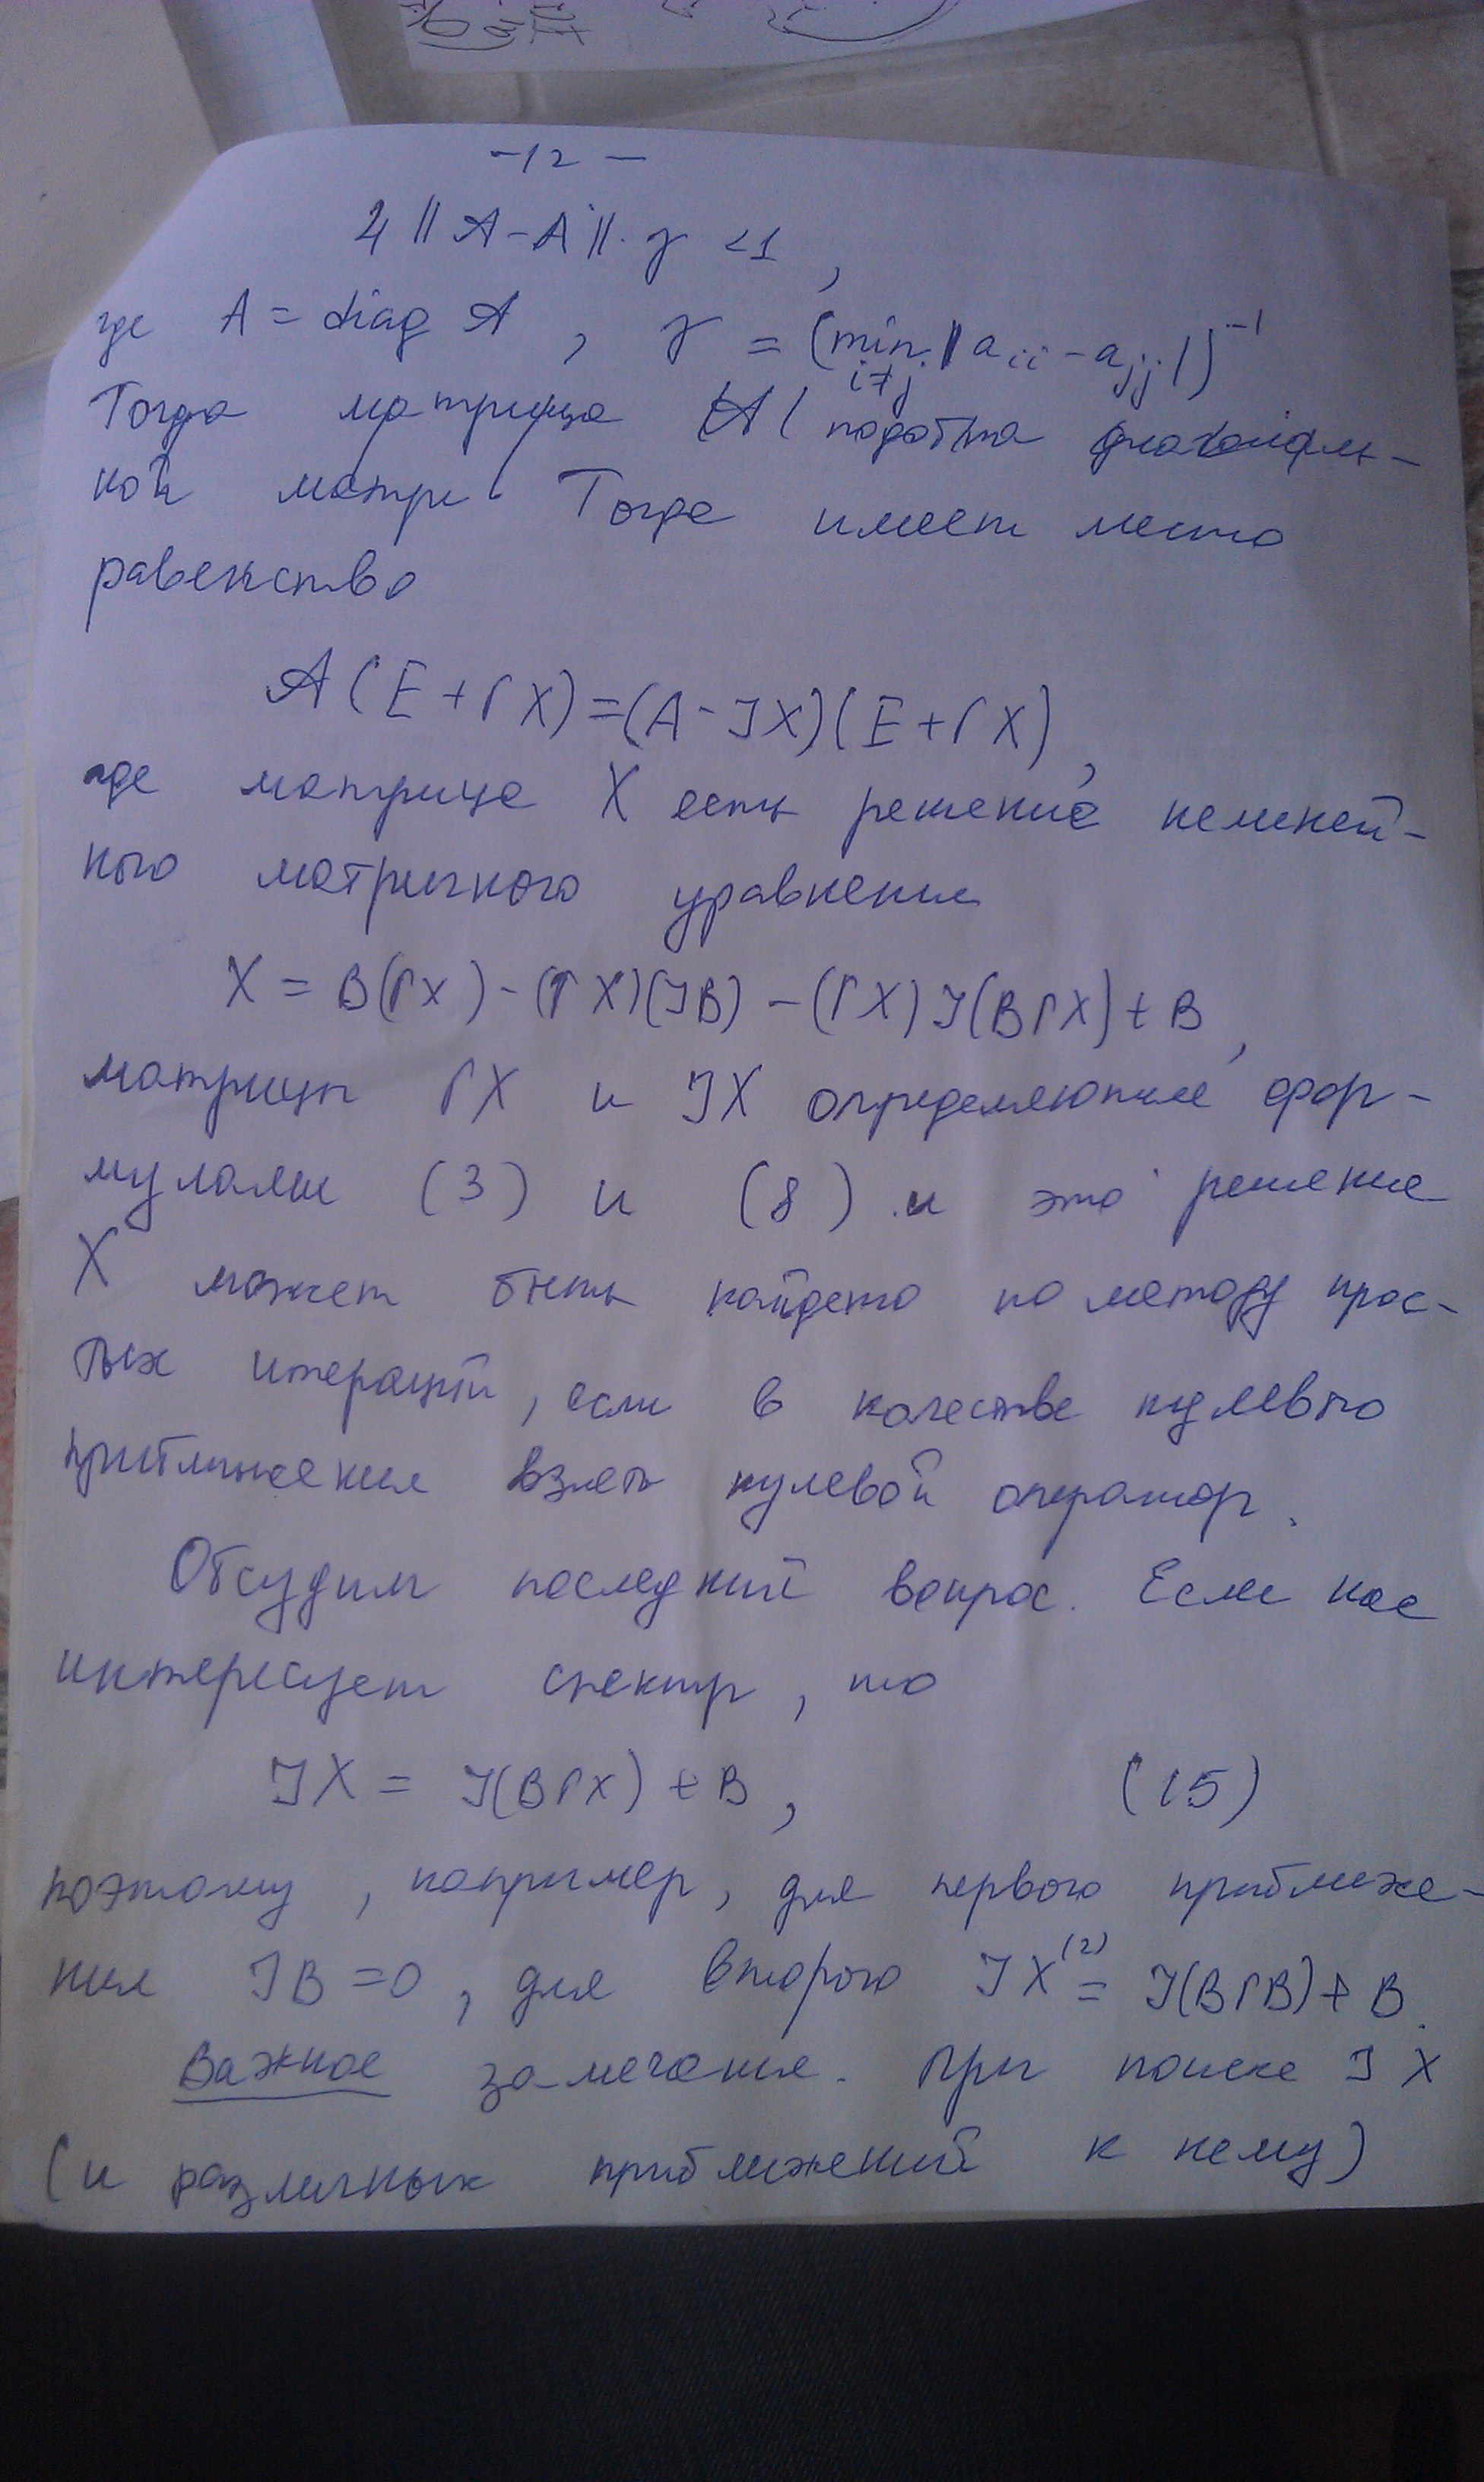 -12-
4 ‖𝒜-A‖·γ <1 ,
где A = diag 𝒜 , γ = (min |a_ii - a_jj|)^-1
i≠j
Тогда матрица 𝒜 ( подобна диагональ-
ной матри Тогда имеет место
равенство
𝒜(E+ΓX)=(A-JX)(E+ΓX),
где матрица X есть решение нелиней-
ного матричного уравнения
X = B(ΓX) - (ΓX)(JB) - (ΓX)J(BΓX) + B ,
матрицы ΓX и JX определяются фор-
мулами (3) и (8) и это решение
X может быть найдено по методу прос-
тых итераций, если в качестве нулевого
приближения взять нулевой оператор.
Обсудим последний вопрос. Если нас
интересует спектр, то
JX = J(BΓX) + B , (15)
поэтому, например, для первого приближе-
ния JB=0, для второго JX^(2) = J(BΓB)+B.
Важное замечание. При поиске JX
(и различных приближений к нему)